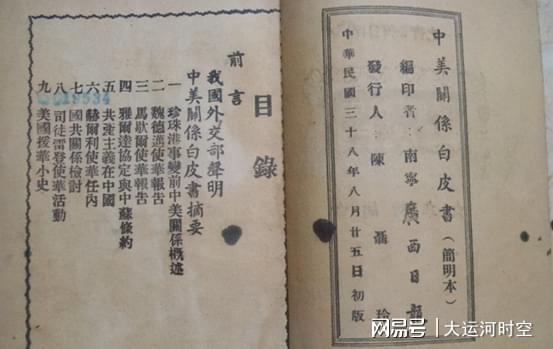 中美關係白皮書(簡明本)
編印者:南寧廣西日報
發行人:陳
中華民國三十八年八月廿五日初版
目錄
前言
我國外交部聲明
中美關係白皮書摘要
一 珍珠港事變前中美關係概述
二 魏德邁使華報告
三 馬歇爾使華報告
四 雅爾達協定與中蘇條約
五 共產主義在中國
六 赫爾利使華任內
七 國共關係檢討
八 司徒雷登使華活動
九 美國援華小史
019534
網易號 | 大运河时空